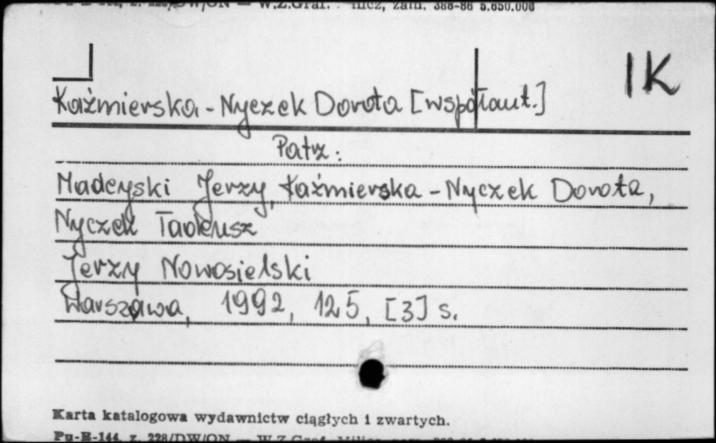 W.Z.Graf. zam. 388-86 5.650.000
1K
Kaźmierska-Nyczek Dorota [współaut.]
Patrz:
Madeyski Jerzy, Kaźmierska-Nyczek Dorota,
Nyczek Tadeusz
Jerzy Nowosielski
Warszawa, 1992, 125, [3] s.
Karta katalogowa wydawnictw ciągłych i zwartych.
Pu-B-144, z. 228/DW/ON — W.Z.Graf.